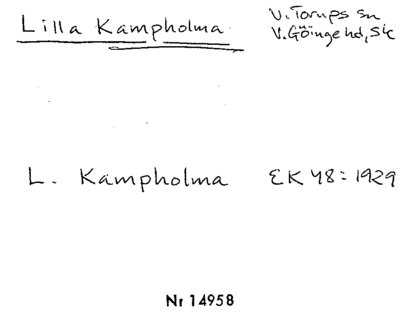 Lilla Kampholma
V. Torups sn
V. Göinge hd, Sk
L. Kampholma EK 48: 1929
Nr 14958